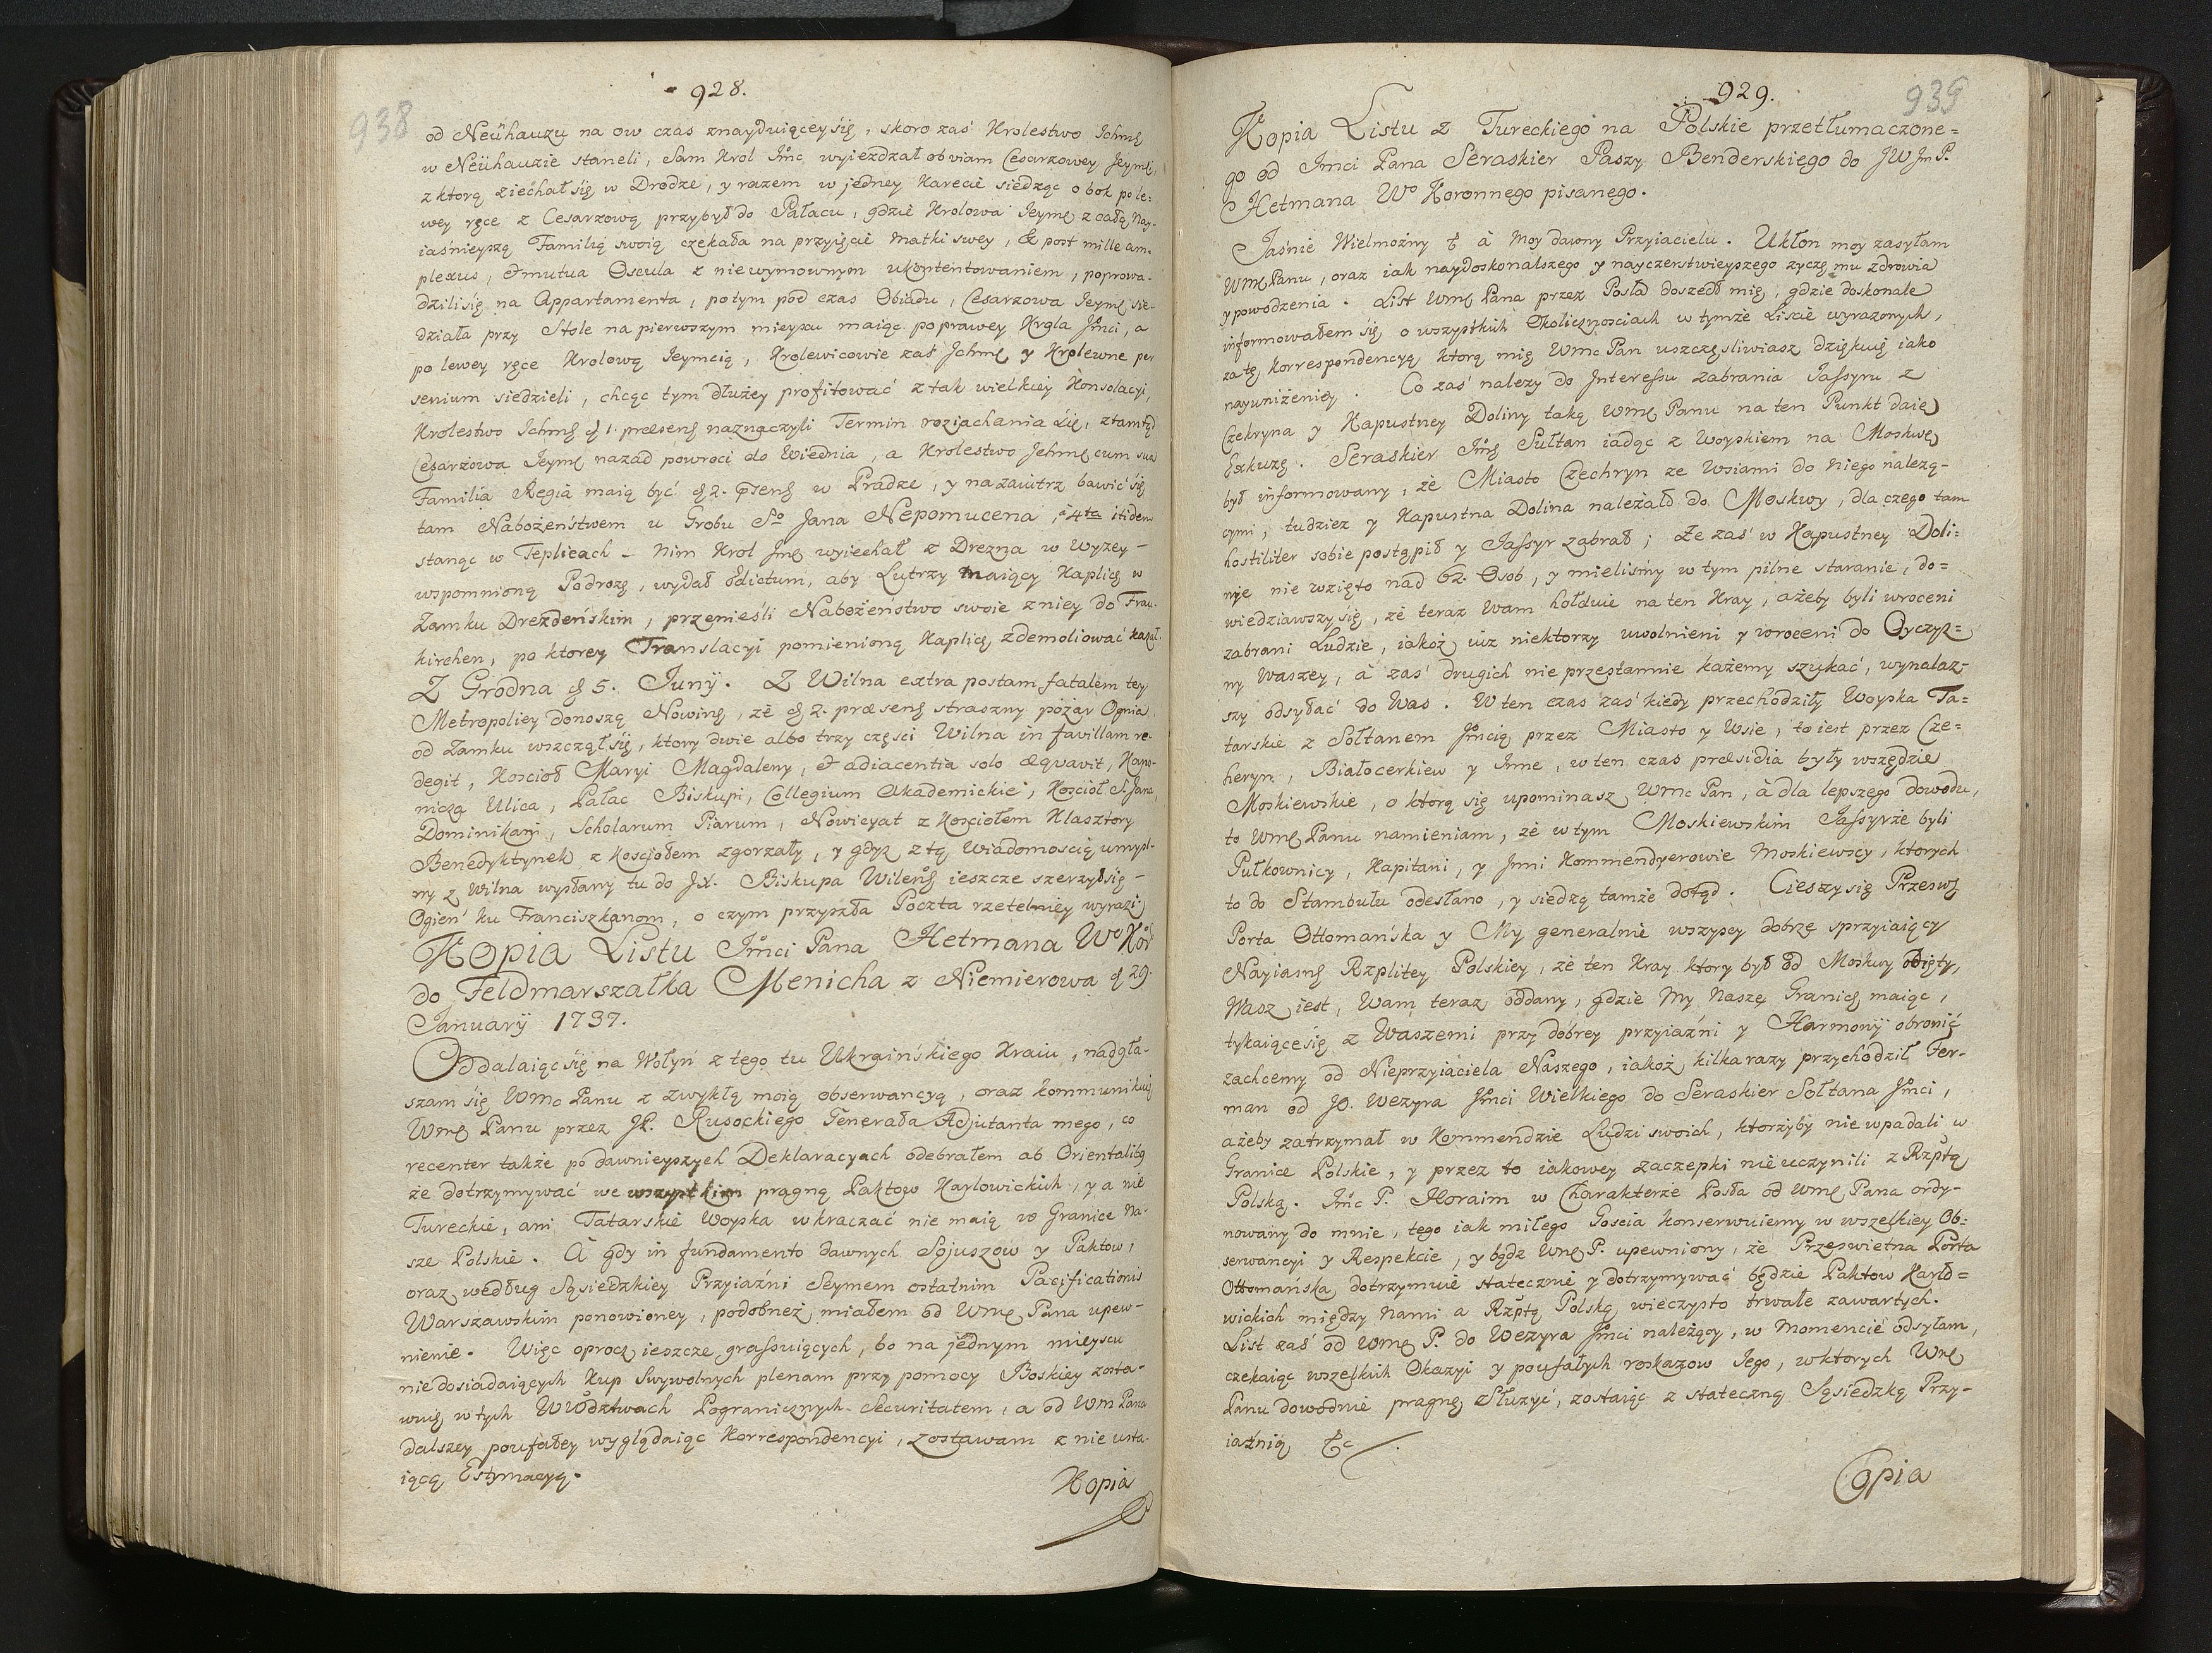 928.
938
od Neühauzu na ow czas znayduiącey się, skoro zaś Krolestwo Ichmę
w Neühauzie staneli, Sam Krol Jmć wyiezdzał obviam Cesarzowey Jeymę,
z ktorą ziechał się w Drodze, y razem w jedney Karecie siedząc obok po le=
wey ręce z Cesarzową przybył do Pałacu, gdzie Krolowa Jeymę z całą Nay-
iaśnieyszą Familią swoią czekała na przyięcie Matki swey, & post mille am-
plexus, & mutua Oscula z niewymownym ukontentowaniem, poprowa-
dzili się na Appartamenta, potym pod czas Obiadu, Cesarzowa Jeymę sie-
działa przy Stole na pierwszym mieyscu maiąc po prawey Krola Jmci, a
po lewey ręce Krolową Jeymcią, Krolewicowie zaś Ichmę y Krolewne per
senium siedzieli, chcąc tym dłużey profitować z tak wielkiey Konsolacyi,
Krolestwo Ichmę d 1. praesens naznaczyli Termin roziachania się, ztamtąd
Cesarzowa Jeymę nazad powroci do Wiednia, a Krolestwo Jehmę cum sua
Familia Regia maią być d 2. psens w Pradze, y nazaiutrz bawić się
tam Nabożeństwem u Grobu So Jana Nepomucena, a 4ta itidem
stanąc w Teplicach - Nim Krol Jmę wyiechał z Drezna w Wyzey-
wspomnioną Podrozę, wydał Edictum, aby Lutrzy maiący Kaplicę w
Zamku Drezdeńskim, przenieśli Nabożeństwo swoie z niey do Frau-
kirchen, po ktorey Translacyi pomienioną Kaplicę zdemoliować kazał.
Z Grodna d 5. Junÿ. Z Wilna extra postam fatalem tey
Metropoliey donoszą Nowinę, zê d 2. praesens straszny pożar Ognia
od Zamku wszczął się, ktory dwie albo trzy części Wilna in favillam re-
degit, Kościoł Maryi Magdaleny, & adiacentia solo aequavit, Kano-
niczą Ulica, Pałac Biskupi, Collegium Akademickie, Kościoł S. Jana,
Dominikani, Scholarum Piarum, Nowicyat z Kościołem Klasztory
Benedyktynek z kościołem zgorzały, y gdyz z tą Wiadomością umysl-
ny z Wilna wysłany tu do JX. Biskupa Wileń ieszcze szerzył się -
Ogień ku Franciszkanom, o czym przyszła Poczta rzetelniey wyrazi
Kopia Listu Jmci Pana Hetmana Wo Kor
do Feldmarszałka Menicha z Niemierowa d 29.
Januarÿ 1737.
Oddalaiąc się na Wołyń z tego tu Ukraińskiego Kraiu, nadgła-
szam się Wmc Panu z zwykłą moią obserwancyą, oraz kommunikuię
Wmę Panu przez JP. Rusockiego Generała Adjutanta mego, co
recenter także po dawnieyszych Deklaracyach odebrałem ab Orientalibg
że dotrzymywać we wszystkim pragną Paktow Karlowickich, y a nie
Tureckie, ani Tatarskie Woyska wkraczać nie maią w Granice na-
sze Polskie. A gdy in fundamento dawnych Sojuszow y Paktow,
oraz według Sąsiedzkiey Przyiaźni Seymem ostatnim Pacificationis
Warszawskim ponowioney, podobnez miałem od Wmę Pana upew-
nienie. Więc oprocz ieszcze grassuiących, bo na jednym mieyscu
nie dosiadaiących Kup Swywolnych plenam przy pomocy Boskiey zosta-
wuię w tych Wwodztwach Pogranicznych Securitatem, a od Wm Pana
dalszey poufałey wyglądaiąc Korrespondencyi, zostawam z nie usta-
iącą Estymacyą.
Kopia
929.
939
Kopia Listu z Tureckiego na Polskie przetłumaczone=
go od Imci Pana Seraskier Paszy Benderskiego do JW Jm P.
Hetmana Wo Koronnego pisanego.
Jaśnie Wielmożny & à moy dawny Przyiacielu. Ukłon moy zasyłam
Wmę Panu, oraz iak naydoskonalszego y nayczerstwieyszego zyczę mu zdrowia
y powodzenia. List Wmę Pana przez Posła doszedł mię, gdzie doskonale
informowałem się o wszystkich Okolicznościach w tymże Liście wyrazonych,
za tę korrespondencyą ktorą mię Wmc Pan uszczęsliwiasz dziękuię iako
nayuniżeniey. Co zaś nalezy do Interessu zabrania Jassyru z
Czekryna y Kapustney Doliny taką Wmę Panu na ten Punkt daię
Exkuzę. Seraskier Jmę Sułtan iadąc z Woyskiem na Moskwę
był informowany, że Miasto Czechryn ze Wsiami do niego należą-
cymi, tudziez y Kapustna Dolina należałd do Moskwy, dla czego tam
hostiliter sobie postąpił y Jassyr zabrał; Że zaś w Kapustney Doli=
nie nie wzięto nad 62. Osob, y mieliśmy w tym pilne staranie, do=
wiedziawszy się, zê teraz Wam hołduie na ten Kray, ażeby byli wroceni
zabrani Ludzie, iakoż iuz niektorzy uwolnieni y wroceni do Oyczyz=
ny Waszey, à zaś drugich nie przestannie każemy szukać, wynalaz-
szy odsyłać do Was. W ten czas zaś kiedy przechodziły Woyska Ta=
tarskie z Sołtanem Jmcią przez Miasto y Wsie, to iest przez Cze=
heryn, Białocerkiew y Inne, w ten czas praesidia były wszędzie
Moskiewskie, o ktorą się upominasz Wmc Pan, à dla lepszego dowodu,
to Wmę Panu namieniam, że w tym Moskiewskim Jassyrze byli
Pułkownicy, Kapitani, y Inni Kommendyerowie Moskiewscy, ktorych
to do Stambułu odesłano, y siedzą tamże dotąd. Cieszy się Przeswę
Porta Ottomańska y My generalnie wszyscy dobrze sprzyiaiący
Nayiasnę Rzplitey Polskiey, że ten Kray ktory był od Moskwy odięty,
Wasz iest, Wam teraz oddany, gdzie My Naszę Granicę maiąc,
tykaiące się z Waszemi przy dobrey przyiaźni y Harmonÿ obronić
zachcemy od Nieprzyiaciela Naszego, iakoż kilka razy przychodził Fer-
man od JO. Wezyra Jmci Wielkiego do Seraskier Sołtana Jmci,
ażeby zatrzymał w Kommendzie Ludzi swoich, ktorzyby nie wpadali w
Granice Polskie, y przez to iakowey zaczepki nie uczynili z Rzptą
Polską. Jmc P. Iloraim w Charakterze Posła od Wmę Pana ordy-
nowany do mnie, tego iak miłego Goscia konserwuiemy w wszelkiey Ob=
serwancyi y Respekcie, y bądz Wmę P. upewniony, że Przeswietna Porta
Ottomańska dotrzymuie statecznie y dotrzymywać będzie Paktow Karło=
wickich między Nami a Rzptą Polską wieczysto trwałe zawartych.
List zaś od Wmę P. do Wezyra Jmci należący, w momencie odsyłam,
czekaiąc wszelkich Okazyi y poufałych roskazow Jego, w ktorych Wmę
Panu dowodnie pragnę służyć, zostaiąc z stateczną Sąsiedzką Przy-
iaźnią &c
Copia